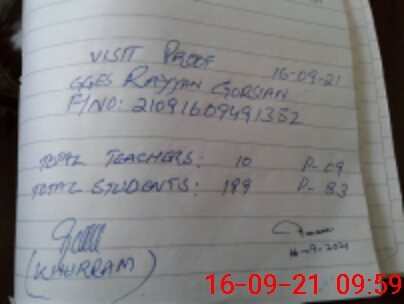 VISIT PROOF
16-09-21
GGES RAYYAN GORSIAN
F/NO: 21091609491352
TOTAL TEACHERS: 10 P-09
TOTAL STUDENTS: 199 P-83
(KHURRAM)
16-9-2021
16-09-21 09:59